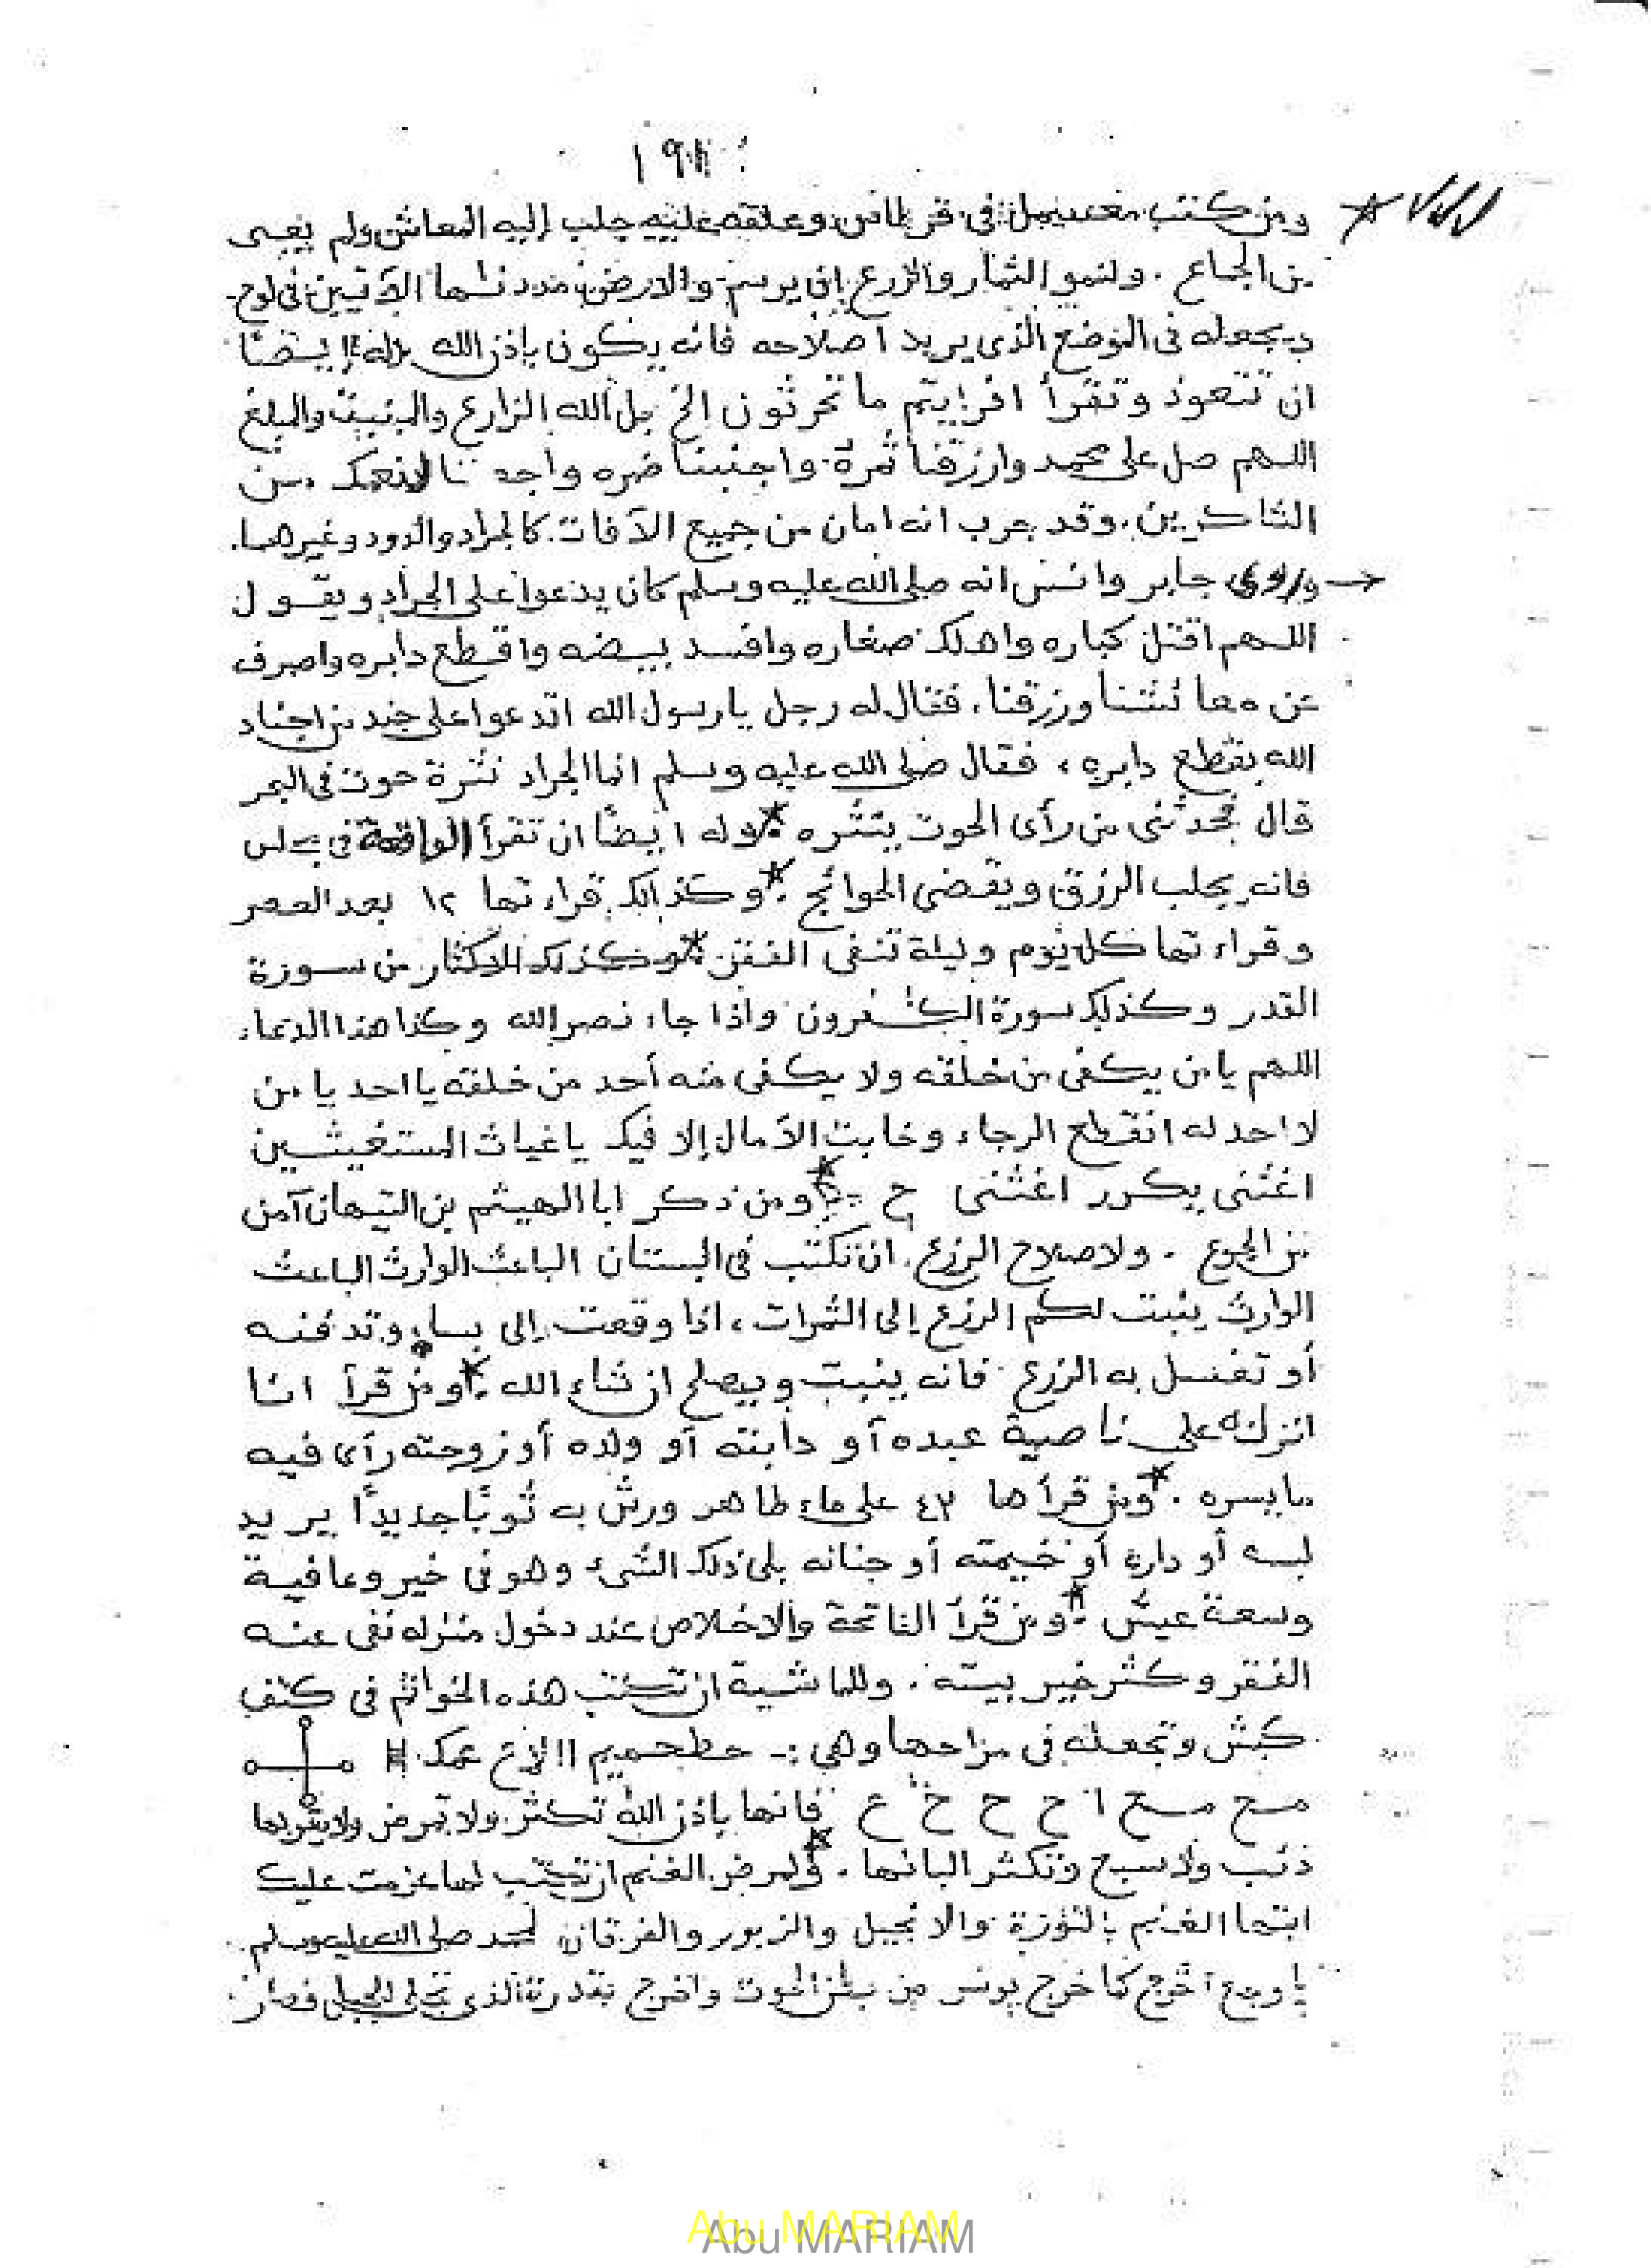 ومن كتب في قرطاس وعلقه عليه جلب إليه المعاش ولم يعيى
من الجماع . ولنمو الثمار والزرع ان يرسم والارض مددنها الآيتين فى لوح
ويجعله فى الموضع الذى يريد اصلاحه فانه يكون بإذن الله وله إيضًا
ان تتعوذ وتقرأ افرايتم ما تحرثون الخ بل الله الزارع والمنبت والمبلغ
اللهم صل على محمد وارزقنا ثمرة واجنبنا ضره واجعلنا لانعمك من
الشاكرين . وقد جرب انه امان من جميع الآفات كالجراد والدود وغيرهما .
وروى جابر وانس انه صلى الله عليه وسلم كان يدعوا على الجراد ويقول
اللهم اقتل كباره واهلك صغاره وافسد بيضه واقطع دابره واصرف
عن معائشنا ورزقنا ، فقال له رجل يا رسول الله اتدعوا على جند من اجناد
الله بقطع دابره ، فقال صلى الله عليه وسلم انما الجراد نثرة حوت فى البحر
قال فحدثنى من رأى الحوت ينثره . وله ايضًا ان تقرأ الواقعة فى مجلس
فانه يجلب الرزق ويقضى الحوائج . وكذالك قراءتها ١٢ بعد العصر
وقراءتها كل يوم وليلة تنفى الفقر . وكذلك الاكثار من سورة
القدر وكذلك سورة الكفرون واذا جاء نصر الله وكذا هذا الدعاء
اللهم يا من يكفى من خلقه ولا يكفى منه أحد من خلقه يا احد يا من
لا احد له انقطع الرجاء وخابت الآمال إلا فيك يا غياث المستغيثين
اغثنى يكرر اغثنى ح ومن ذكر ابا الهيثم بن التيهان آمن
من الجوع . ولاصلاح الزرع ان تكتب فى البستان الباعث الوارث الباعث
الوارث ينبت لكم الزرع إلى الثمرات ، اذا وقعت إلى وتدفنه
أو تغسل به الزرع فانه ينبت ويصلح ان شاء الله . ومن قرأ انا
انزلنه على ناصية عبده أو دابته أو ولده أو زوجته رأى فيه
ما يسره . ومن قرأها ٤٣ على ماء طاهر ورش به ثوبًا جديدًا يريد
لبسه أو داره أو خيمته أو جنانه بلى ذلك الشىء وهو فى خير وعافية
وسعة عيش . ومن قرأ الفاتحة والاخلاص عند دخول منزله نفى عنه
الفقر وكثر خير بيته . وللماشية ان تكتب هذه الخواتم فى كتف
كبش وتجعله فى مراحها وهي :- حطحميم
مح مح ا ح ح خ ع فانها بإذن الله تكثر ولا تمرض ولا يقربها
ذئب ولا سبع وتكثر البانها . ولمرض الغنم ان تكتب لها عزمت عليك
ايتها الغنم بالتورة والانجيل والزبور والفرقان لمحمد صلى الله عليه وسلم
يا وجع اخرج كما خرج يونس من بطن الحوت واخرج بقدرة الذى تجلى للجبل فصار
Abu MARIAM
Abu MARIAM